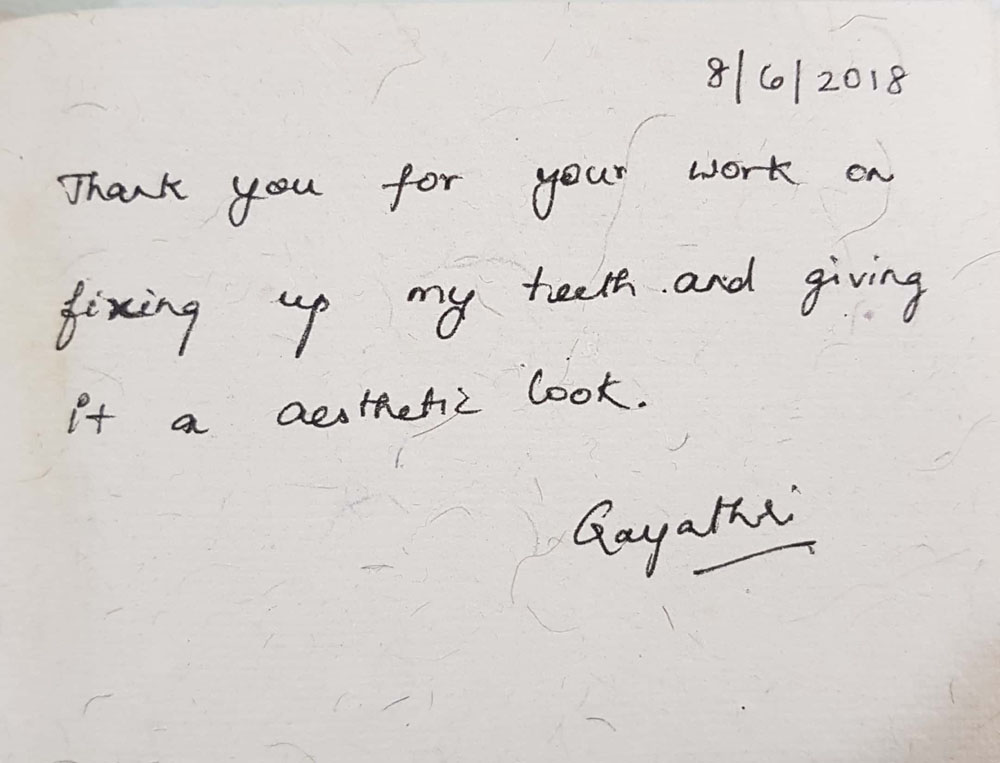 8/6/2018
Thank you for your work on
fixing up my teeth and giving
it a aesthetic look.
Gayathri